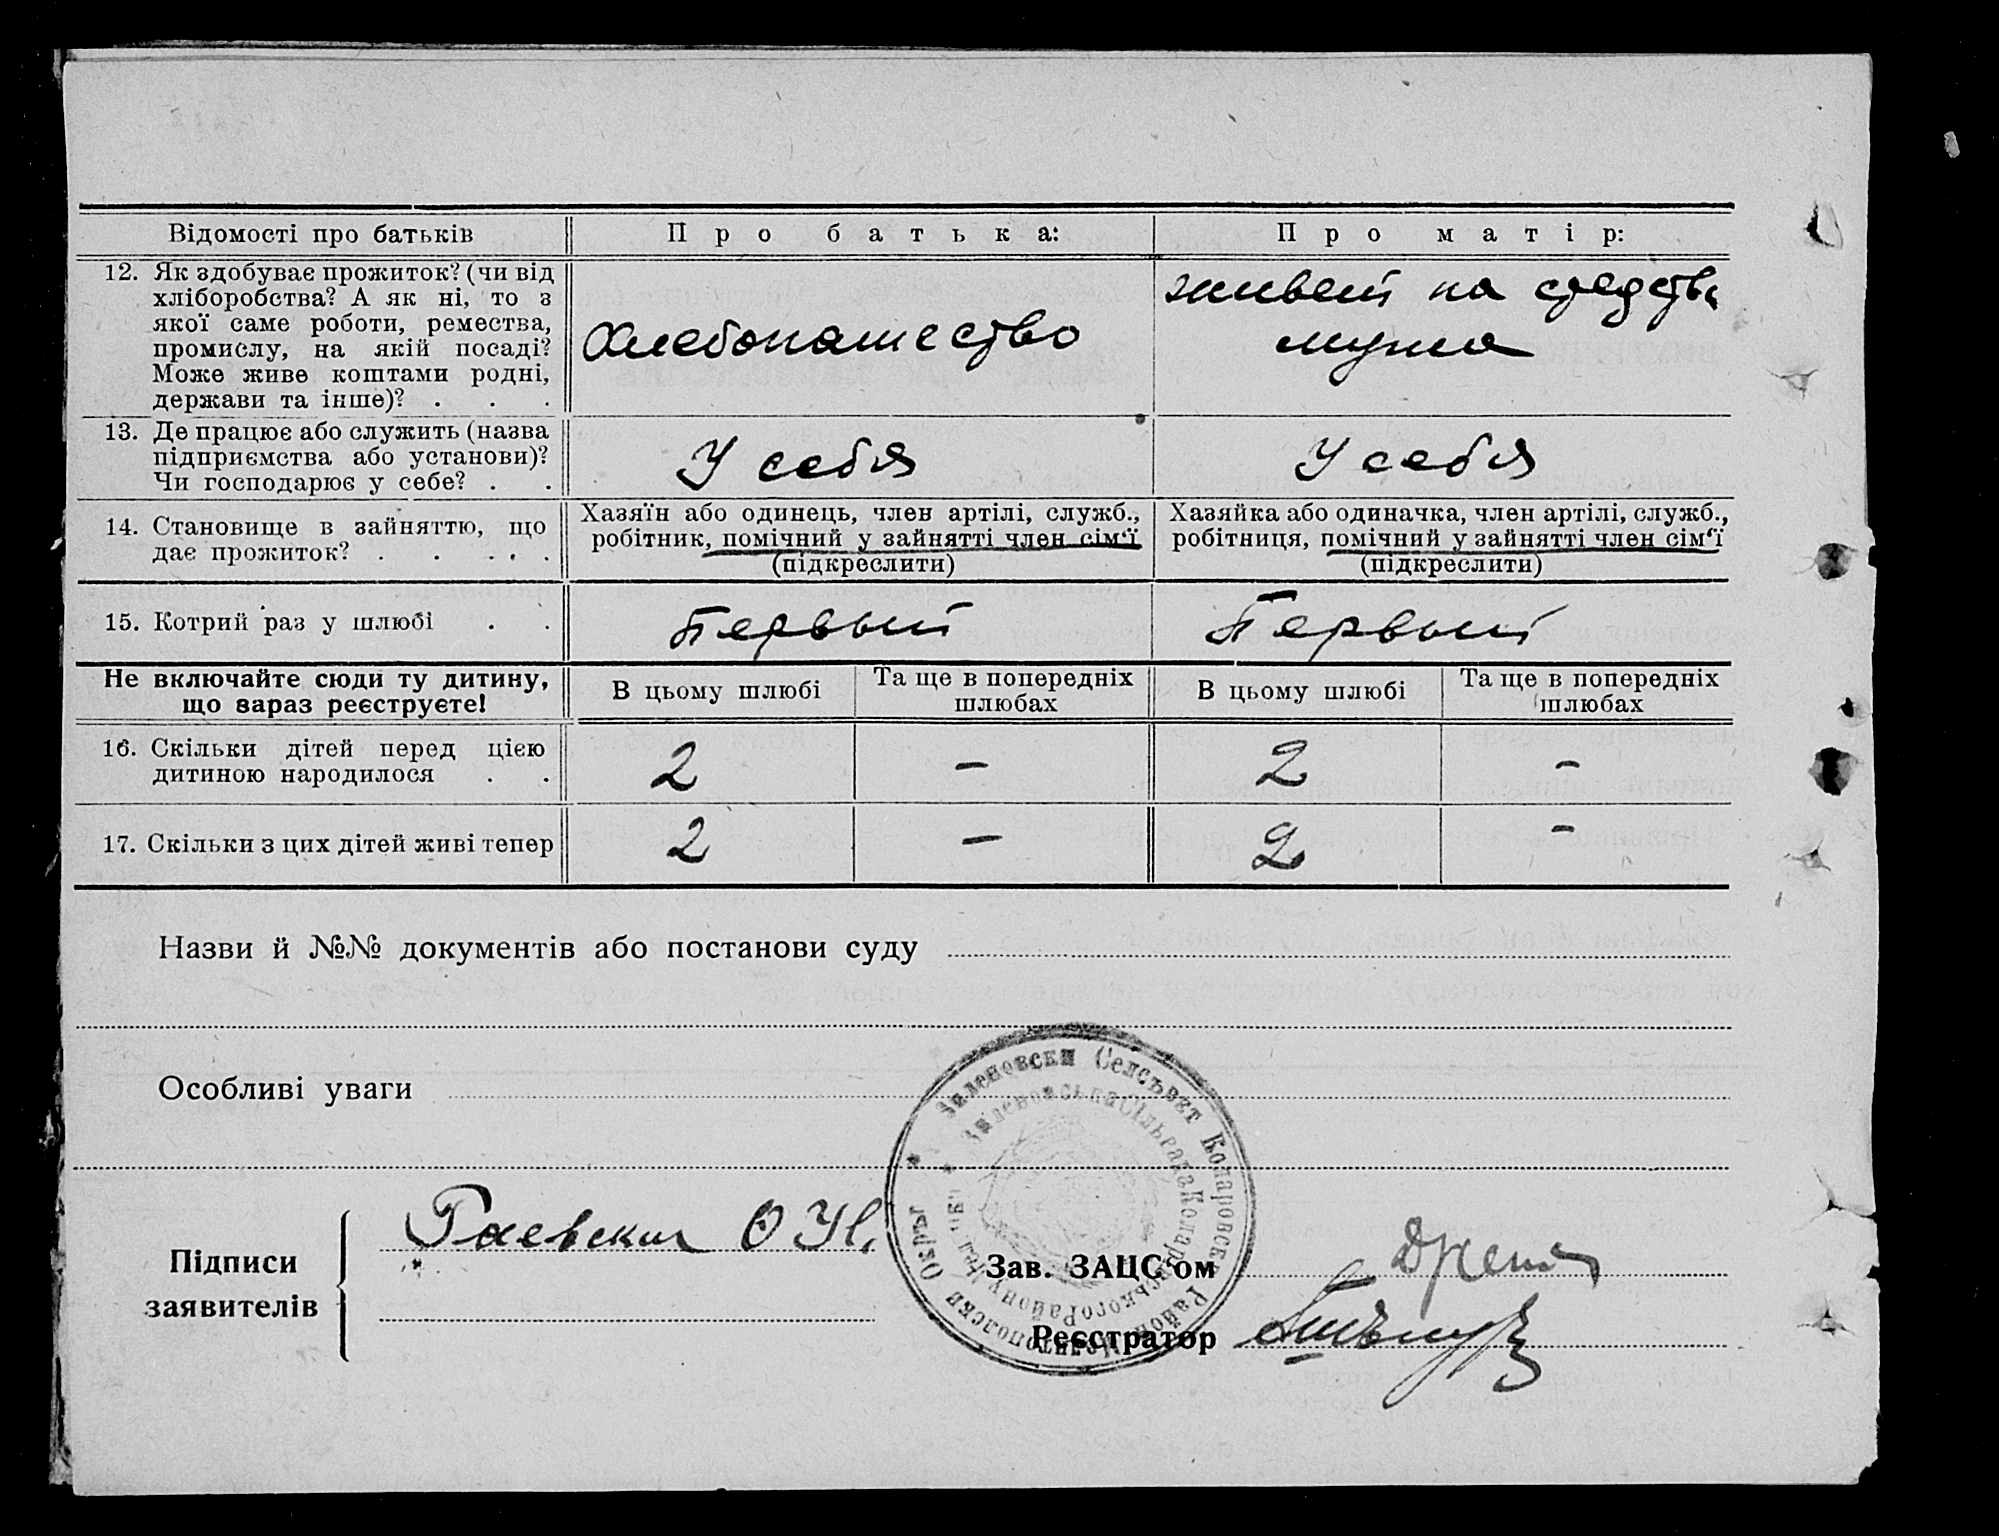 Відомості про батьків
Про батька:
Про матір:
12. Як здобуває прожиток? (чи від
хліборобства? А як ні, то з
якої саме роботи, ремества,
промислу, на якій посаді?
Може живе коштами родні,
держави та інше)? . . .
Хлебопашество
живет на средства
мужа
13. Де працює або служить (назва
підприємства або установи)?
Чи господарює у себе? . .
У себя
У себя
14. Становище в зайняттю, що
дає прожиток? . . . . .
Хазяїн або одинець, член артілі, служб.,
робітник, помічний у зайнятті член сім'ї
(підкреслити)
Хазяйка або одиначка, член артілі, служб.,
робітниця, помічний у зайнятті член сім'ї
(підкреслити)
15. Котрий раз у шлюбі . .
Первый
Первый
Не включайте сюди ту дитину,
що зараз реєструєте!
В цьому шлюбі
Та ще в попередніх
шлюбах
В цьому шлюбі
Та ще в попередніх
шлюбах
16. Скільки дітей перед цією
дитиною народилося . .
2
–
2
–
17. Скільки з цих дітей живі тепер
2
–
2
–
Назви й №№ документів або постанови суду
Особливі уваги
Зиленовски Селсъвет Коларовски Район Мелитополски Окръг
Зиленовська Сільрада Коларівського Району
Підписи
заявителів
Раевский
Зав. ЗАЦС'ом
Реєстратор